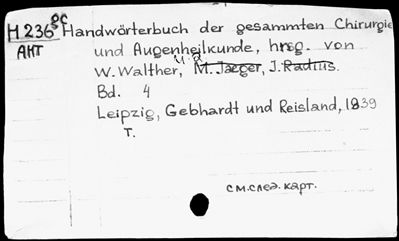 H 236 gc Handwörterbuch der gesammten Chirurgie
АКТ und Augenheilkunde, hrsg. von
W. Walther, u. a M. Jaeger, J. Radius.
Bd. 4
Leipzig, Gebhardt und Reisland, 1839
T.
см. след. карт.